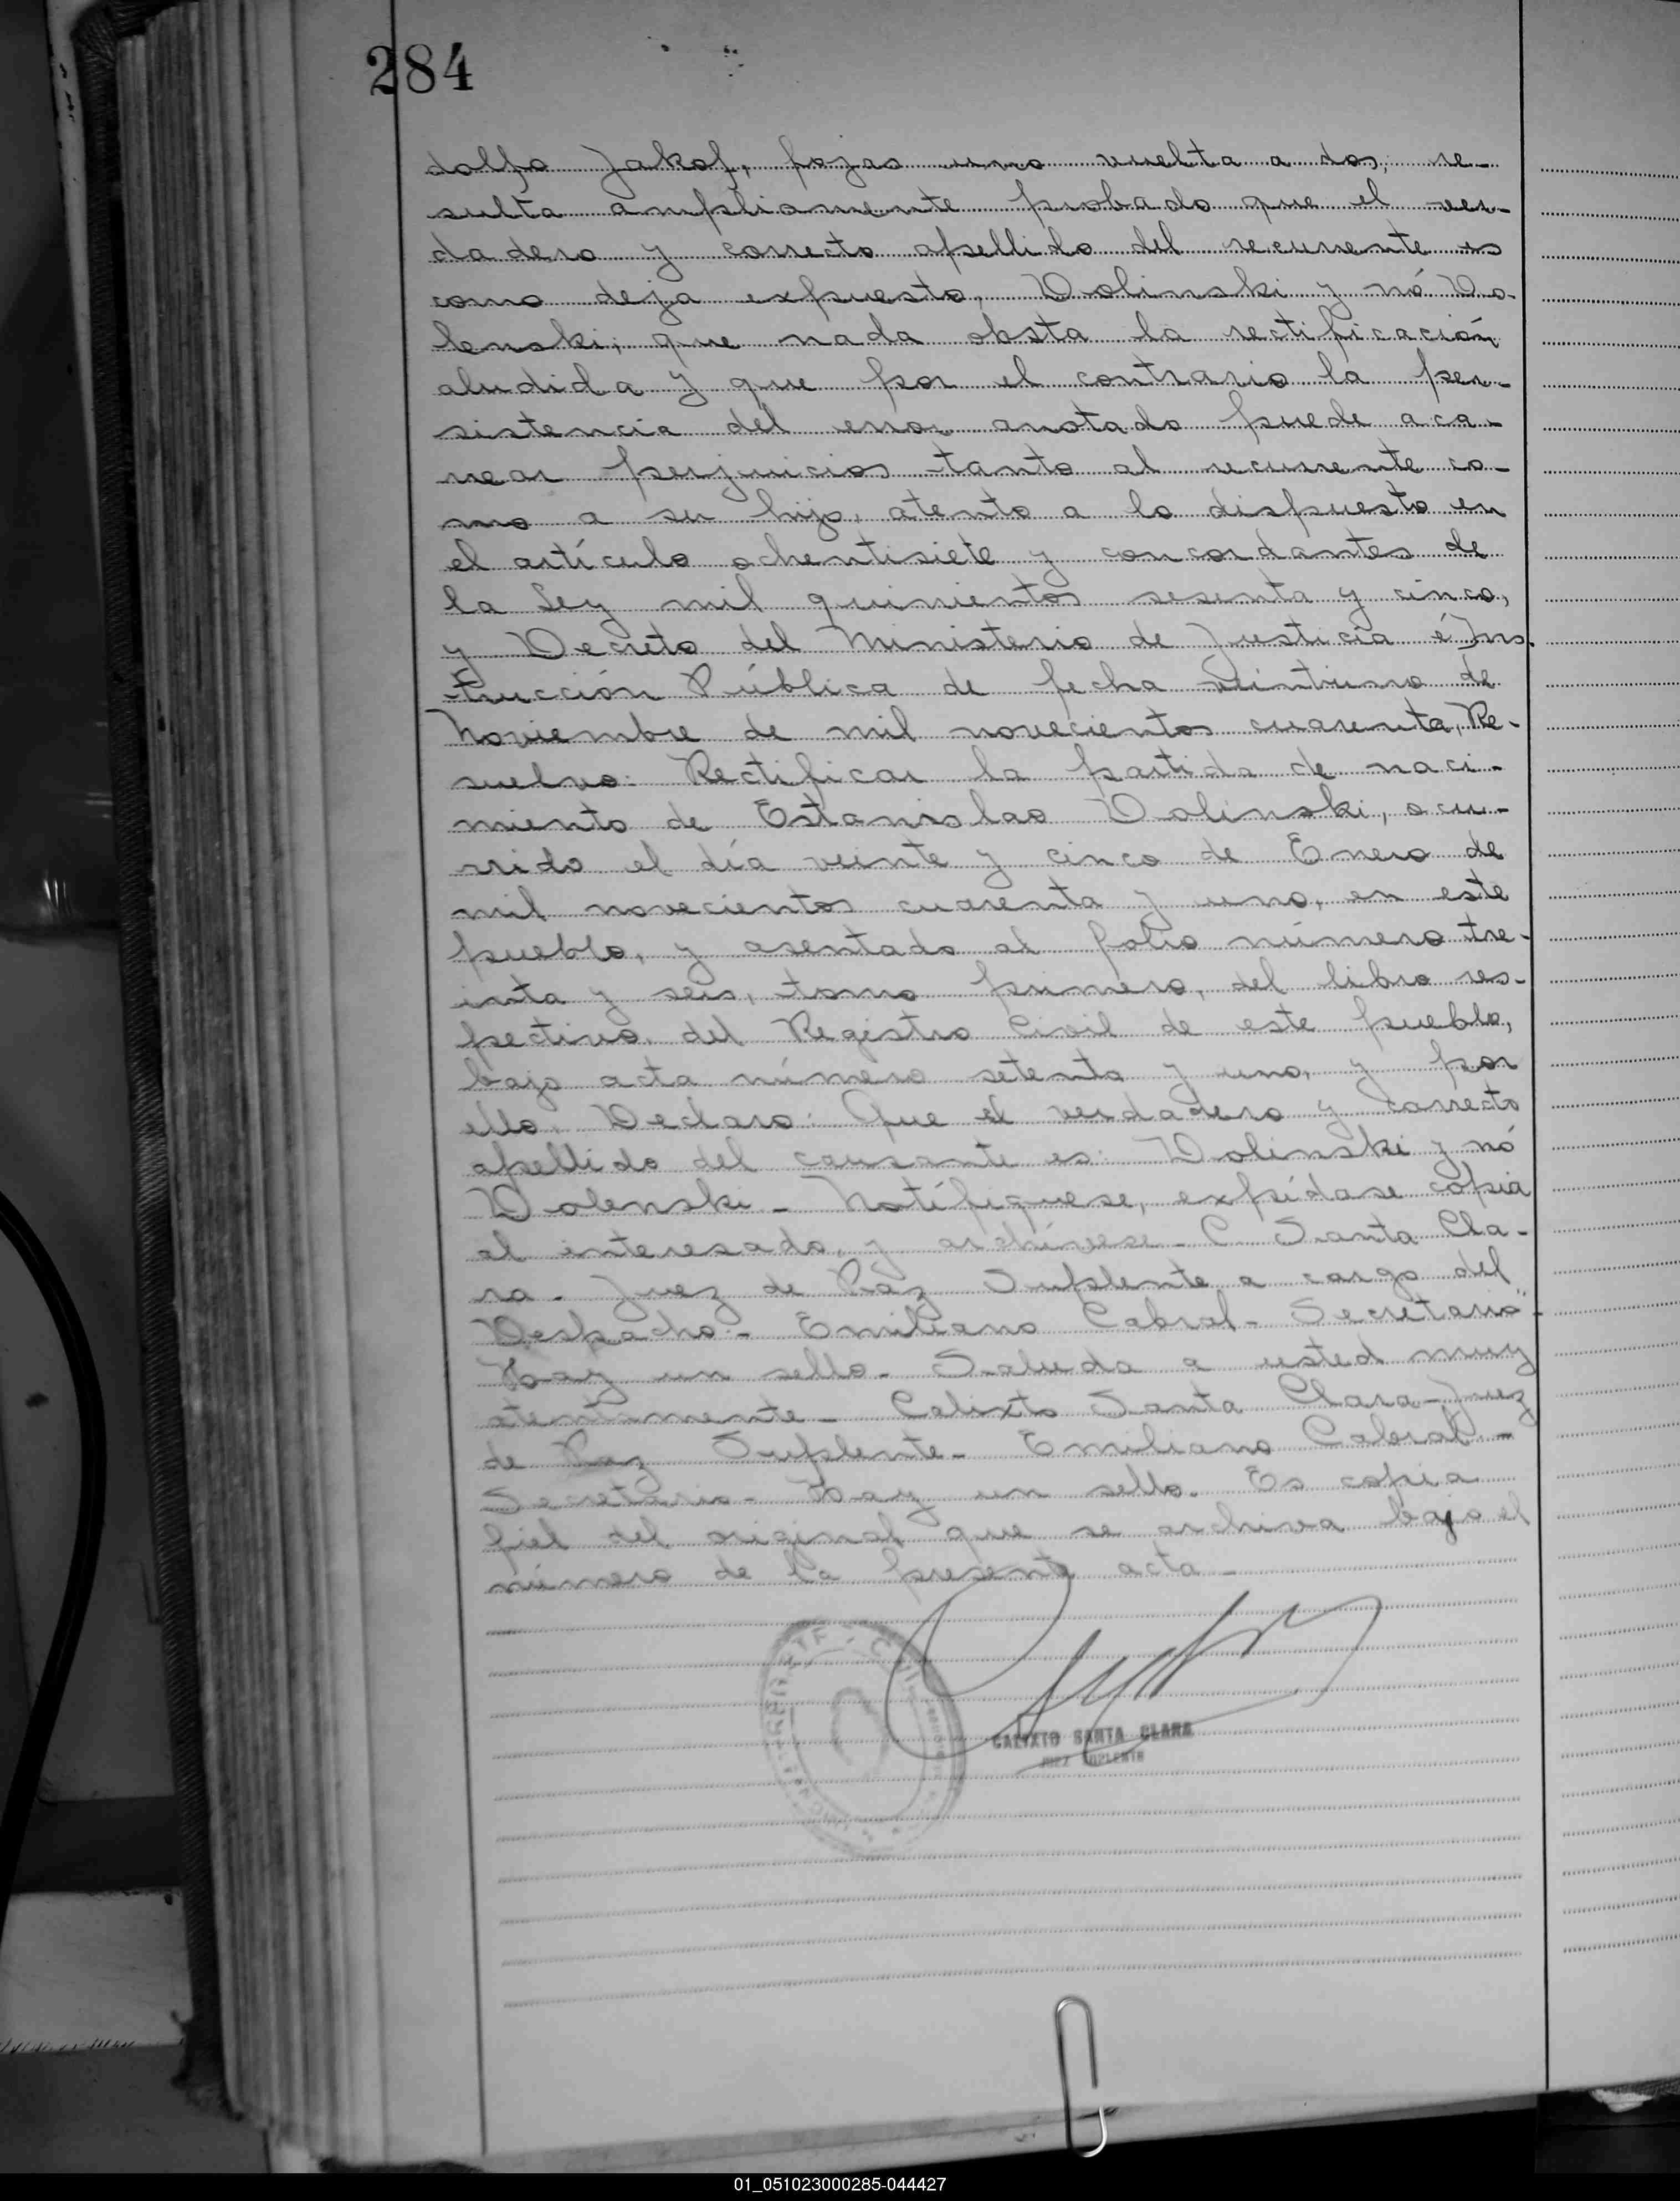 284
dolfo Jakof, fojas uno vuelta a dos, re-
sulta ampliamente probado que el ver-
dadero y correcto apellido del recurrente es
como deja expuesto, Dolinski y nó Do-
lenski; que nada obsta la rectificación
aludida y que por el contrario la per-
sistencia del error anotado puede aca-
rrear perjuicios tanto al recurrente co-
mo a su hijo, atento a lo dispuesto en
el artículo ochentisiete y concordantes de
la Ley mil quinientos sesenta y cinco,
y Decreto del Ministerio de Justicia é Ins-
trucción Pública de fecha veintiuno de
Noviembre de mil novecientos cuarenta, Re-
suelvo: Rectificar la partida de naci-
miento de Estanislao Dolinski, ocu-
rrido el día veinte y cinco de Enero de
mil novecientos cuarenta y uno, en este
pueblo, y asentado al folio número tre-
inta y seis, tomo primero, del libro res-
pectivo, del Registro Civil de este pueblo,
bajo acta número setenta y uno, y por
ello. Declaro: Que el verdadero y correcto
apellido del causante es: Dolinski y nó
Dolenski - Notifíquese, expídase copia
al interesado, y archívese - C Santa Cla-
ra. Juez de Paz Suplente a cargo del
Despacho - Emiliano Cabral - Secretario"-
Hay un sello. Saluda a usted muy
atentamente - Calixto Santa Clara - Juez
de Paz Suplente - Emiliano Cabral -
Secretario - Hay un sello. Es copia
fiel del original que se archiva bajo el
número de la presente acta -
CALIXTO SANTA CLARA
JUEZ SUPLENTE
01_051023000285-044427